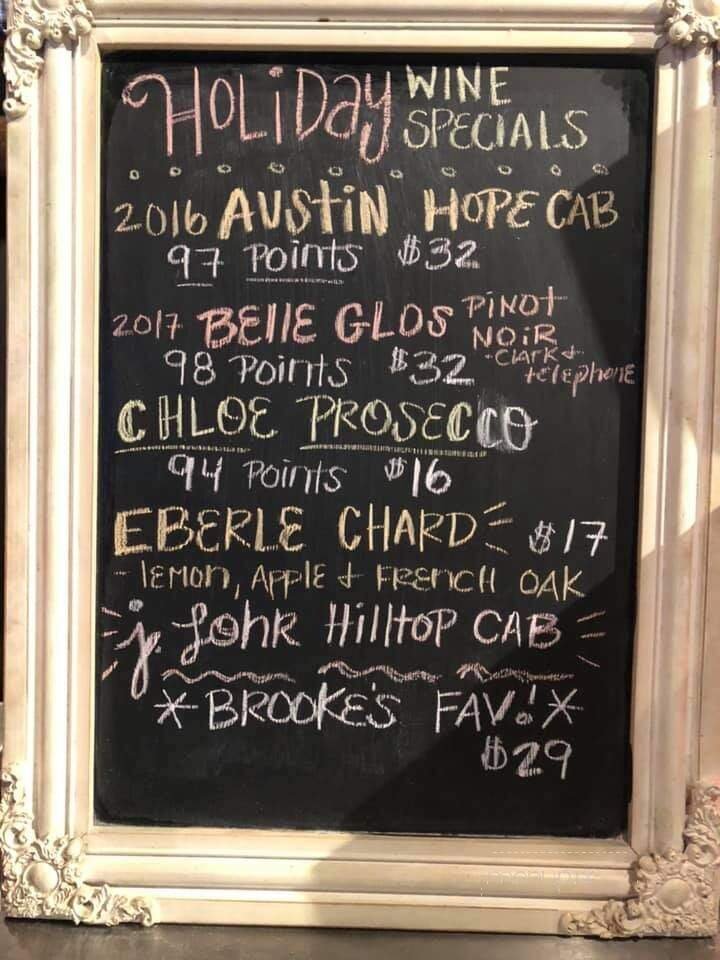 HOLiDay WINE SPECIALS
2016 AUSTIN HOPE CAB
97 Points $32
2017 BEllE GLOS PiNOt NOiR
-Clark & telephone
98 Points $32
CHLOE PROSECCO
94 Points $16
EBERLE CHARD $17
- lEMON, APPlE & FRENCH OAK
j. Lohr HilltOP CAB
* BROOKE'S FAV! *
$29